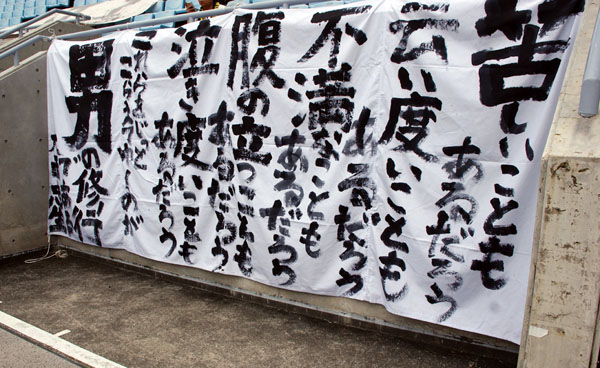 苦しいことも
あるだろう
云い度いことも
あるだろう
不満なことも
あるだろう
腹の立つことも
あるだろう
泣き度いことも
あるだろう
これらをじっと
こらえてゆくのが
男の修行